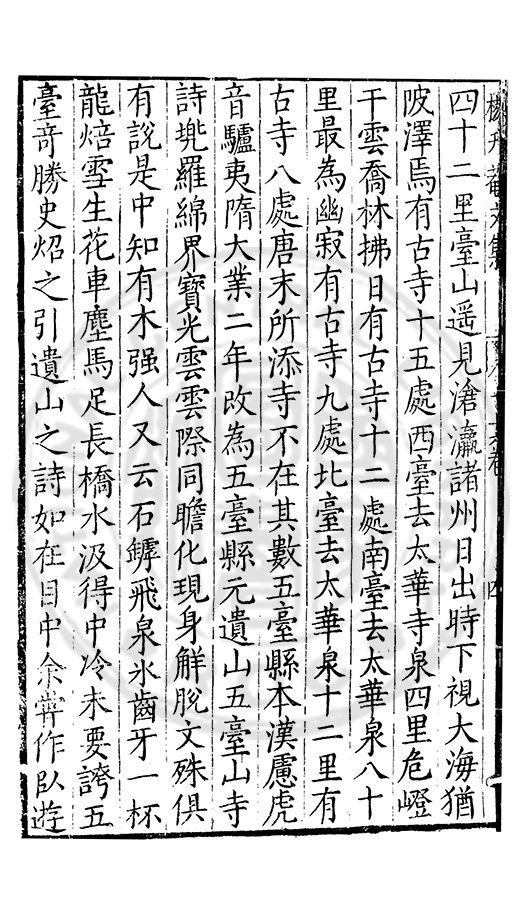 四十二里臺山遥見滄瀛諸州日出時下視大海猶
陂澤焉有古寺十五處西臺去太華寺泉四里危嶝
干雲喬林拂日有古寺十二處南臺去太華泉八十
里最為幽寂有古寺九處北臺去太華泉十二里有
古寺八處唐末所添寺不在其數五臺縣本漢慮虎
音驢夷隋大業二年改為五臺縣元遺山五臺山寺
詩兠羅綿界寶光雲雲際同瞻化現身解脫文殊俱
有說是中知有木强人又云石罅飛泉氷齒牙一杯
龍焙雪生花車塵馬足長橋水汲得中泠未要誇五
臺竒勝史炤之引遺山之詩如在目中余嘗作臥遊